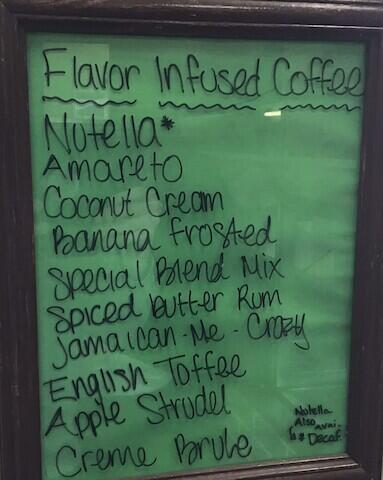 Flavor Infused Coffee
Nutella*
Amareto
Coconut Cream
Banana Frosted
Special Blend Mix
Spiced Butter Rum
Jamaican-Me-Crazy
English Toffee
Apple Strudel
Creme Brule
Nutella
Also Avai-
Decaf.